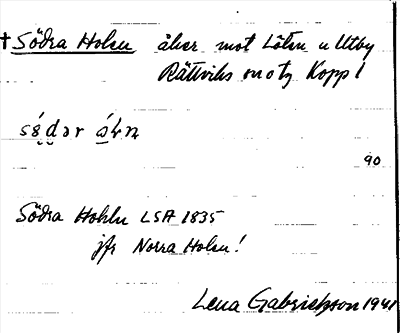 † Södra Holen åker mot Löten u Utby
Rättviks sn o tg Kopp l
90
Södra Hohln LSA 1835
jfr Norra Holen!
Lena Gabrielsson 1941